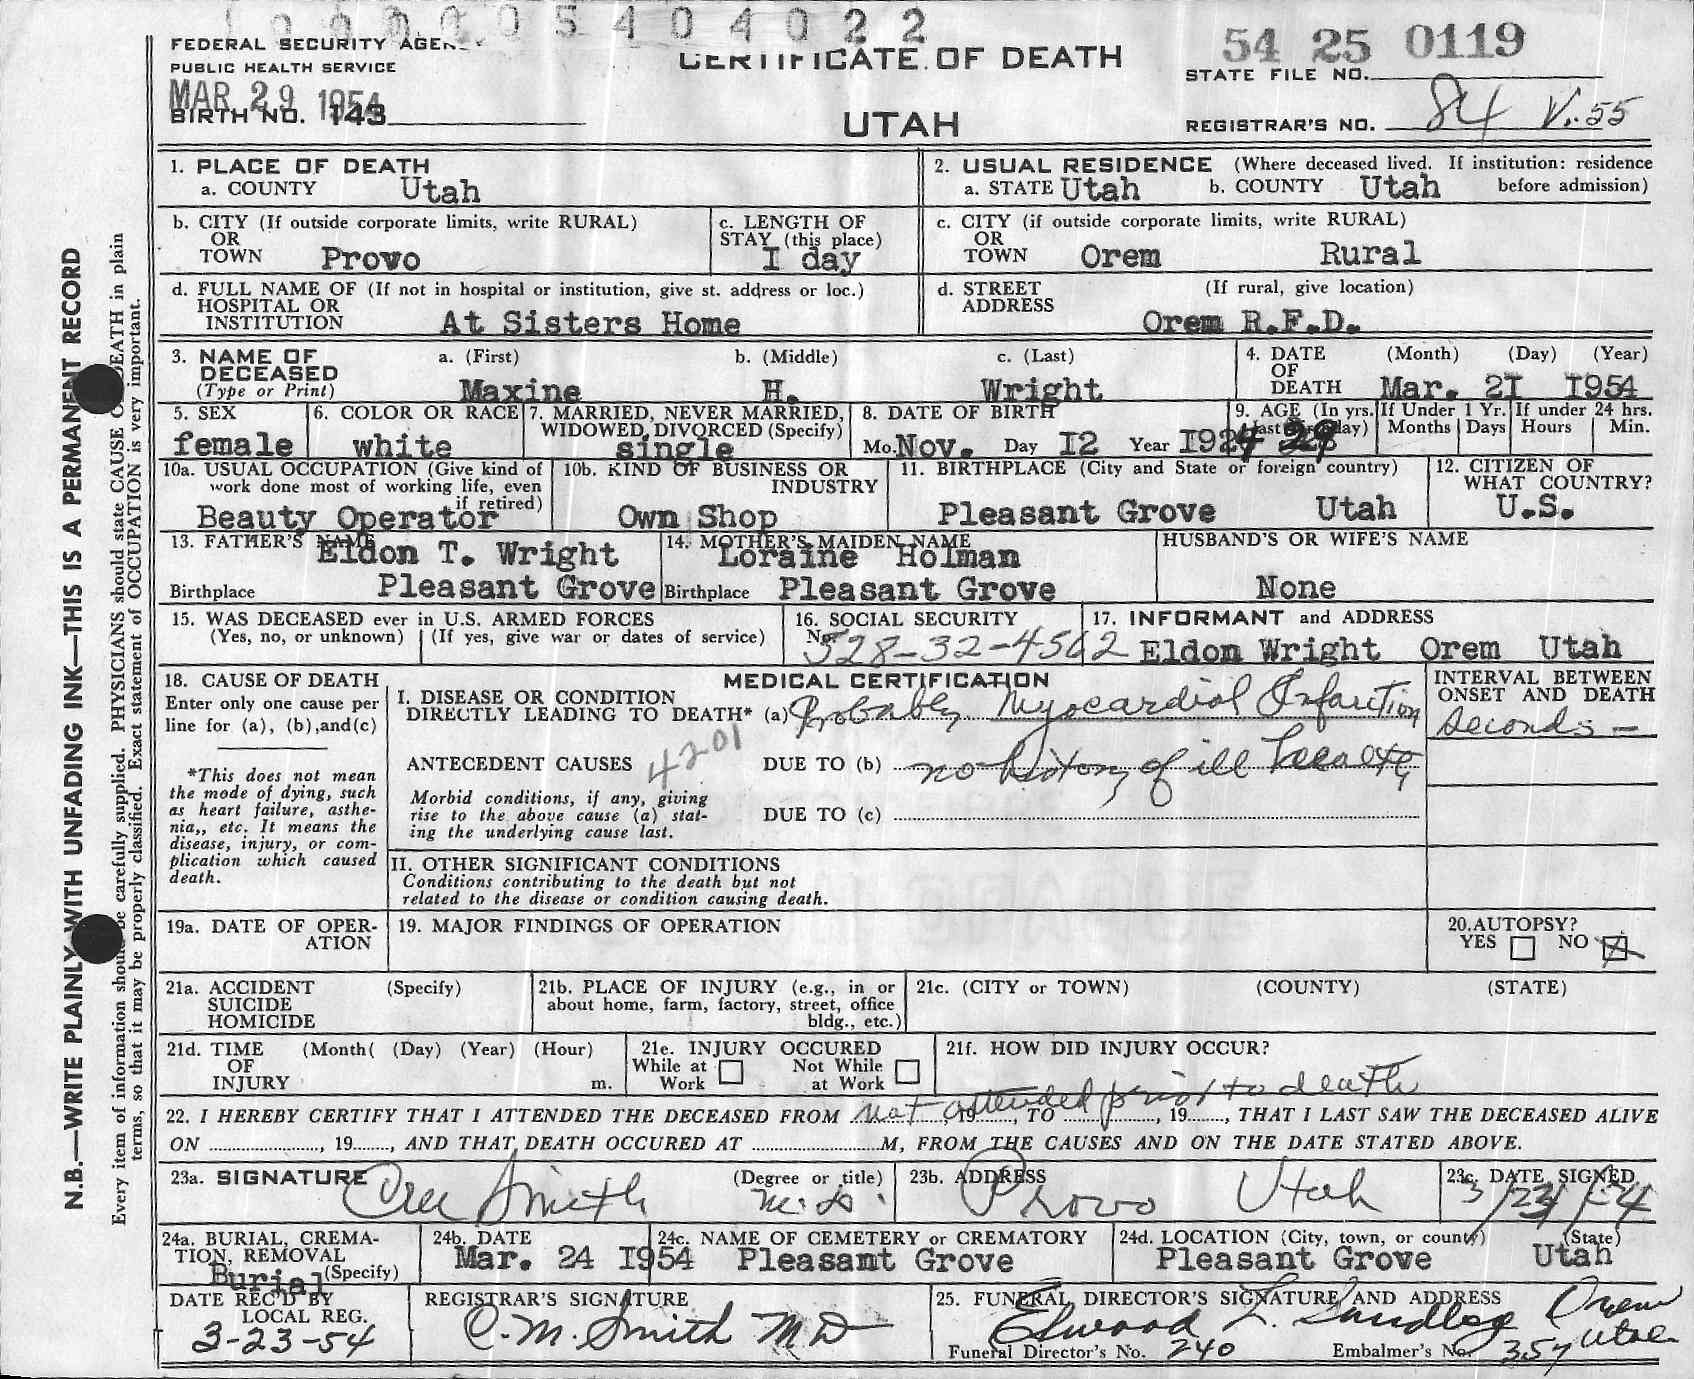 1000054022
FEDERAL SECURITY AGENCY
PUBLIC HEALTH SERVICE
MAR 29 1954
BIRTH NO. 143
CERTIFICATE OF DEATH
UTAH
54 25 0119
STATE FILE NO.
REGISTRAR'S NO. 84 V.55
1. PLACE OF DEATH
a. COUNTY Utah
2. USUAL RESIDENCE (Where deceased lived. If institution: residence before admission)
a. STATE Utah b. COUNTY Utah
b. CITY (If outside corporate limits, write RURAL) OR TOWN Provo
c. LENGTH OF STAY (this place) I day
c. CITY (if outside corporate limits, write RURAL) OR TOWN Orem Rural
d. FULL NAME OF (If not in hospital or institution, give st. address or loc.) HOSPITAL OR INSTITUTION At Sisters Home
d. STREET ADDRESS (If rural, give location) Orem R.F.D.
3. NAME OF DECEASED (Type or Print) a. (First) Maxine b. (Middle) H. c. (Last) Wright
4. DATE OF DEATH (Month) (Day) (Year) Mar. 2I I954
5. SEX female
6. COLOR OR RACE white
7. MARRIED, NEVER MARRIED, WIDOWED, DIVORCED (Specify) single
8. DATE OF BIRTH Mo. Nov. Day I2 Year I924
9. AGE (In yrs. last birthday) 29 If Under 1 Yr. Months Days If under 24 hrs. Hours Min.
10a. USUAL OCCUPATION (Give kind of work done most of working life, even if retired) Beauty Operator
10b. KIND OF BUSINESS OR INDUSTRY Own Shop
11. BIRTHPLACE (City and State or foreign country) Pleasant Grove Utah
12. CITIZEN OF WHAT COUNTRY? U.S.
13. FATHER'S NAME Eldon T. Wright
Birthplace Pleasant Grove
14. MOTHER'S MAIDEN NAME Loraine Holman
Birthplace Pleasant Grove
HUSBAND'S OR WIFE'S NAME
None
15. WAS DECEASED ever in U.S. ARMED FORCES
(Yes, no, or unknown) (If yes, give war or dates of service)
16. SOCIAL SECURITY No. 528-32-4562
17. INFORMANT and ADDRESS
Eldon Wright Orem Utah
18. CAUSE OF DEATH
Enter only one cause per line for (a), (b), and (c)
*This does not mean the mode of dying, such as heart failure, asthenia,, etc. It means the disease, injury, or complication which caused death.
MEDICAL CERTIFICATION
I. DISEASE OR CONDITION DIRECTLY LEADING TO DEATH* (a) Probably Myocardial Infarction
INTERVAL BETWEEN ONSET AND DEATH
Seconds -
4201
ANTECEDENT CAUSES DUE TO (b) no history of ill health
Morbid conditions, if any, giving rise to the above cause (a) stating the underlying cause last.
DUE TO (c)
II. OTHER SIGNIFICANT CONDITIONS
Conditions contributing to the death but not related to the disease or condition causing death.
19a. DATE OF OPERATION
19. MAJOR FINDINGS OF OPERATION
20. AUTOPSY?
YES NO X
21a. ACCIDENT SUICIDE HOMICIDE (Specify)
21b. PLACE OF INJURY (e.g., in or about home, farm, factory, street, office bldg., etc.)
21c. (CITY or TOWN) (COUNTY) (STATE)
21d. TIME OF INJURY (Month( (Day) (Year) (Hour) m.
21e. INJURY OCCURED While at Work Not While at Work
21f. HOW DID INJURY OCCUR?
not attended prior to death
22. I HEREBY CERTIFY THAT I ATTENDED THE DECEASED FROM , 19 , TO , 19 , THAT I LAST SAW THE DECEASED ALIVE
ON , 19 , AND THAT DEATH OCCURED AT M, FROM THE CAUSES AND ON THE DATE STATED ABOVE.
23a. SIGNATURE Smith (Degree or title) M.D.
23b. ADDRESS Provo Utah
23c. DATE SIGNED
24a. BURIAL, CREMATION, REMOVAL (Specify) Burial
24b. DATE Mar. 24 I954
24c. NAME OF CEMETERY or CREMATORY Pleasant Grove
24d. LOCATION (City, town, or county) (State) Pleasant Grove Utah
DATE REC'D BY LOCAL REG. 3-23-54
REGISTRAR'S SIGNATURE C. M. Smith MD
25. FUNERAL DIRECTOR'S SIGNATURE AND ADDRESS
Elwood L. Sundberg Orem Utah
Funeral Director's No. 240 Embalmer's No. 357
N.B.—WRITE PLAINLY WITH UNFADING INK—THIS IS A PERMANENT RECORD
Every item of information should be carefully supplied. PHYSICIANS should state CAUSE OF DEATH in plain
terms, so that it may be properly classified. Exact statement of OCCUPATION is very important.